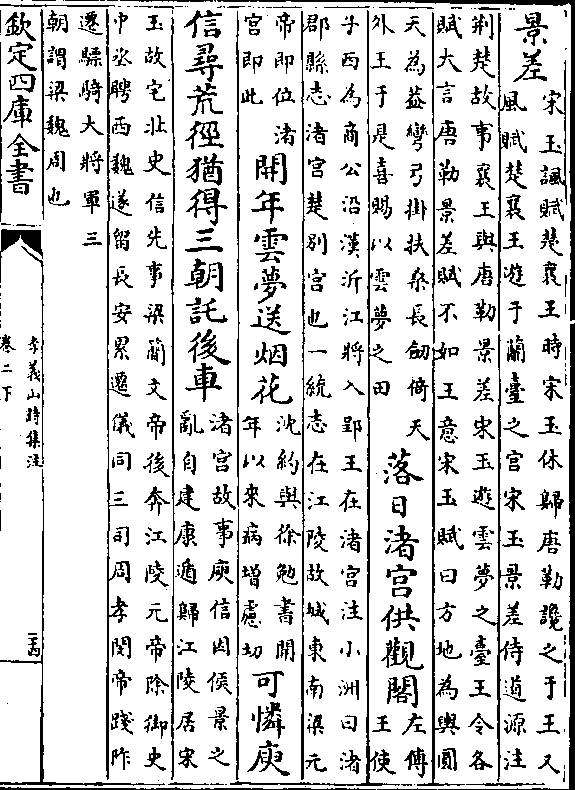 景差
宋玉諷賦楚襄王時宋玉休歸唐勒讒之于王又
風賦楚襄王遊于蘭臺之宫宋玉景差侍道源注
荆楚故事襄王與唐勒景差宋玉遊雲夢之臺王令各
賦大言唐勒景差賦不如王意宋玉賦曰方地為輿圓
天為葢彎弓掛扶桑長劒倚天
外王于是喜賜以雲夢之田
落日渚宫供觀閣
左傳
王使
子西為商公沿漢泝江將入郢王在渚宫注小洲曰渚
郡縣志渚宫楚别宫也一統志在江陵故城東南梁元
帝即位渚
宫即此
開年雲夢送烟花
沈約與徐勉書開
年以來病增慮切
可憐庾
信尋荒徑猶得三朝託後車
渚宫故事庾信因侯景之
亂自建康遁歸江陵居宋
玉故宅北史信先事梁簡文帝後奔江陵元帝除御史
中丞聘西魏遂留長安累遷儀同三司周孝閔帝踐阼
遷驃騎大將軍三
朝謂梁魏周也
欽定四庫全書
李義山詩集注
卷二下